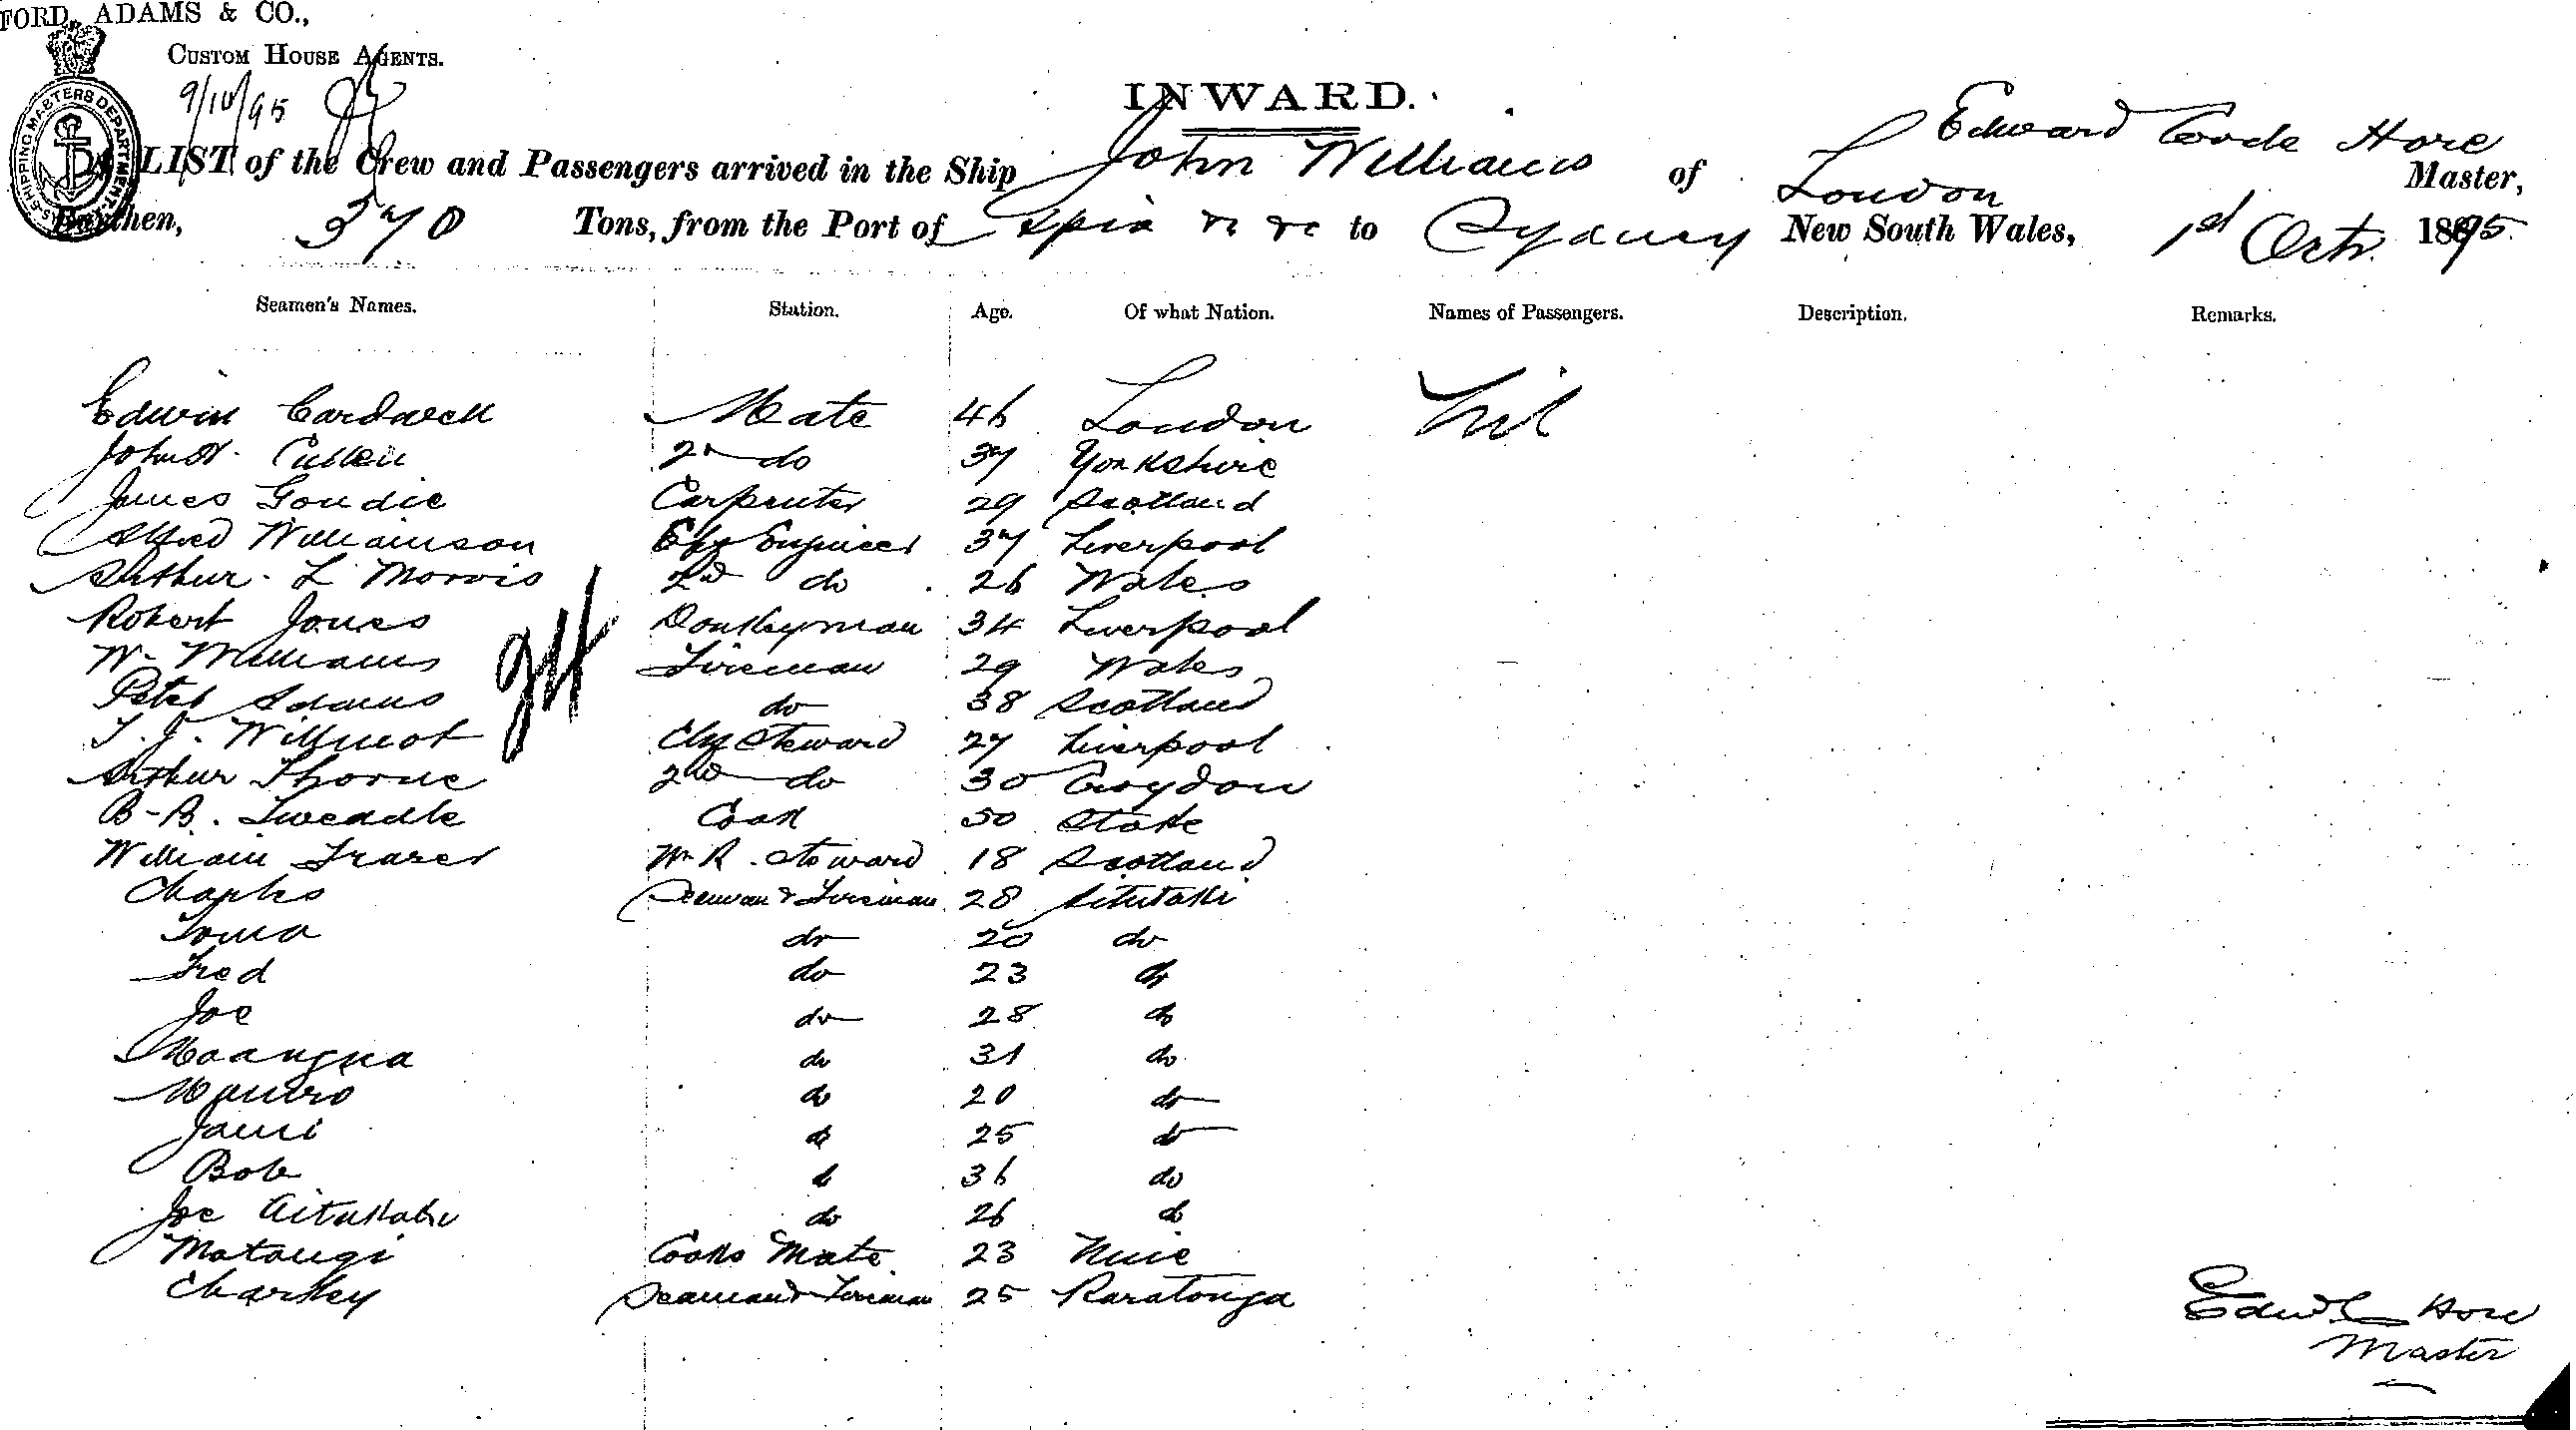 FORD, ADAMS & CO.,
CUSTOM HOUSE AGENTS.
9/10/95
SHIPPING MASTERS DEPARTMENT
INWARD.
Edward Coode Hore
A LIST of the Crew and Passengers arrived in the Ship John Williams of London Master,
Burthen, 370 Tons, from the Port of Apia &c &c to Sydney New South Wales, 1st Octr. 1895.
Seamen's Names. Station. Age. Of what Nation. Names of Passengers. Description. Remarks.
Edwin Cardwell Mate 46 London Nil
John H. Cullen 2n do 37 Yorkshire
James Goudie Carpenter 29 Scotland
Alfred Williamson Chf Engineer 37 Liverpool
Arthur L Morris 2nd do 26 Wales
Robert Jones Donkeyman 34 Liverpool
W. Williams Fireman 29 Wales
Peter Adams do 38 Scotland
T. J. Willmot Chf Steward 27 Liverpool
Arthur Thorne 2nd do 30 Croydon
B-B. Tweddle Cook 50 Stoke
William Fraser M.R. Steward 18 Scotland
Charles Seaman & Fireman 28 Aitutaki
Toma do 20 do
Fred do 23 do
Joe do 28 do
Maangna do 31 do
do 20 do
do 25 do
Bob do 36 do
Joe Aitukabu do 26 do
Matangi Cooks Mate 23 Nuie
Charley Seaman & Fireman 25 Raratonga
24
Edwd C Hore
Master